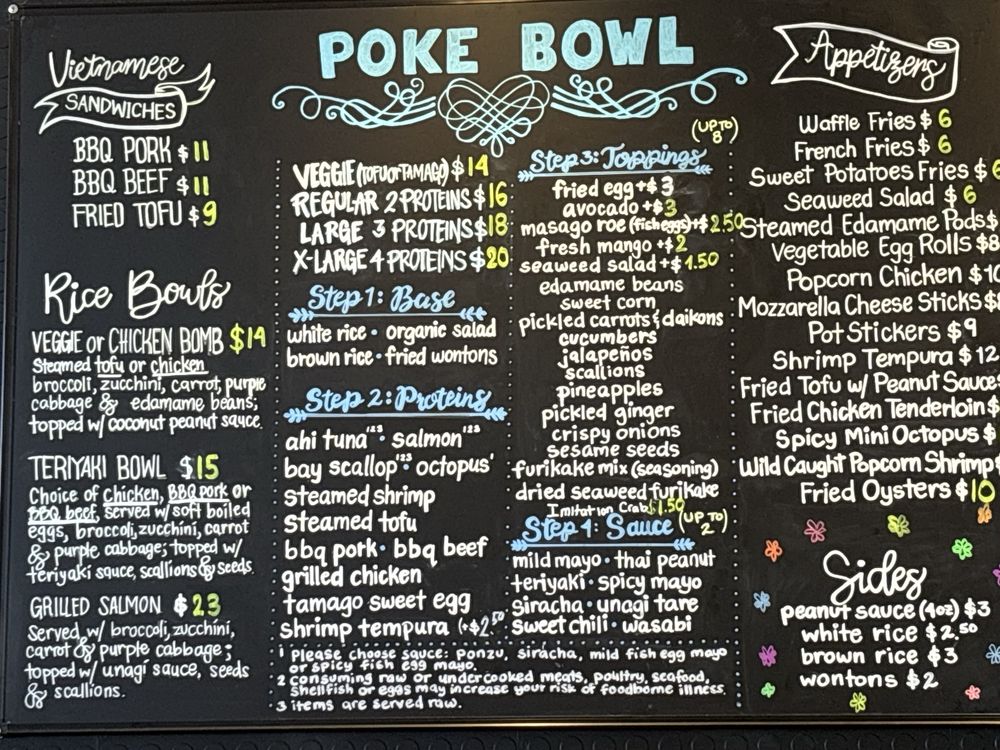 Vietnamese
SANDWICHES
BBQ PORK $11
BBQ BEEF $11
FRIED TOFU $9
Rice Bowls
VEGGIE or CHICKEN BOMB $14
Steamed tofu or chicken
broccoli, zucchini, carrot, purple
cabbage & edamame beans;
topped w/ coconut peanut sauce.
TERIYAKI BOWL $15
Choice of chicken, BBQ pork or
BBQ beef, served w/ soft boiled
eggs, broccoli, zucchini, carrot
& purple cabbage; topped w/
teriyaki sauce, scallions & seeds.
GRILLED SALMON $23
Served w/ broccoli, zucchini,
carrot & purple cabbage;
topped w/ unagi sauce, seeds
& scallions.
POKE BOWL
VEGGIE (TOFU or TAMAGO) $14
REGULAR 2 PROTEINS $16
LARGE 3 PROTEINS $18
X-LARGE 4 PROTEINS $20
Step 1: Base
white rice • organic salad
brown rice • fried wontons
Step 2: Proteins
ahi tuna¹²³ • salmon¹²³
bay scallop¹²³ • octopus¹
steamed shrimp
steamed tofu
bbq pork • bbq beef
grilled chicken
tamago sweet egg
shrimp tempura (+$2.50)
(UP TO 8)
Step 3: Toppings
fried egg +$3
avocado +$3
masago roe (fish eggs) +$2.50
fresh mango +$2
seaweed salad +$1.50
edamame beans
sweet corn
pickled carrots & daikons
cucumbers
jalapeños
scallions
pineapples
pickled ginger
crispy onions
sesame seeds
furikake mix (seasoning)
dried seaweed furikake
Imitation Crab $1.50
Step 4: Sauce (UP TO 2)
mild mayo • thai peanut
teriyaki • spicy mayo
Siracha • unagi tare
sweet chili • wasabi
1 Please choose sauce: ponzu, siracha, mild fish egg mayo
or spicy fish egg mayo.
2 consuming raw or undercooked meats, poultry, seafood,
Shellfish or eggs may increase your risk of foodborne illness.
3 items are served raw.
Appetizers
Waffle Fries $6
French Fries $6
Sweet Potatoes Fries $6
Seaweed Salad $6
Steamed Edamame Pods $
Vegetable Egg Rolls $8
Popcorn Chicken $10
Mozzarella Cheese Sticks $
Pot Stickers $9
Shrimp Tempura $12
Fried Tofu w/ Peanut Sauce
Fried Chicken Tenderloin $
Spicy Mini Octopus $
Wild Caught Popcorn Shrimp $
Fried Oysters $10
Sides
peanut sauce (4oz) $3
white rice $2.50
brown rice $3
wontons $2